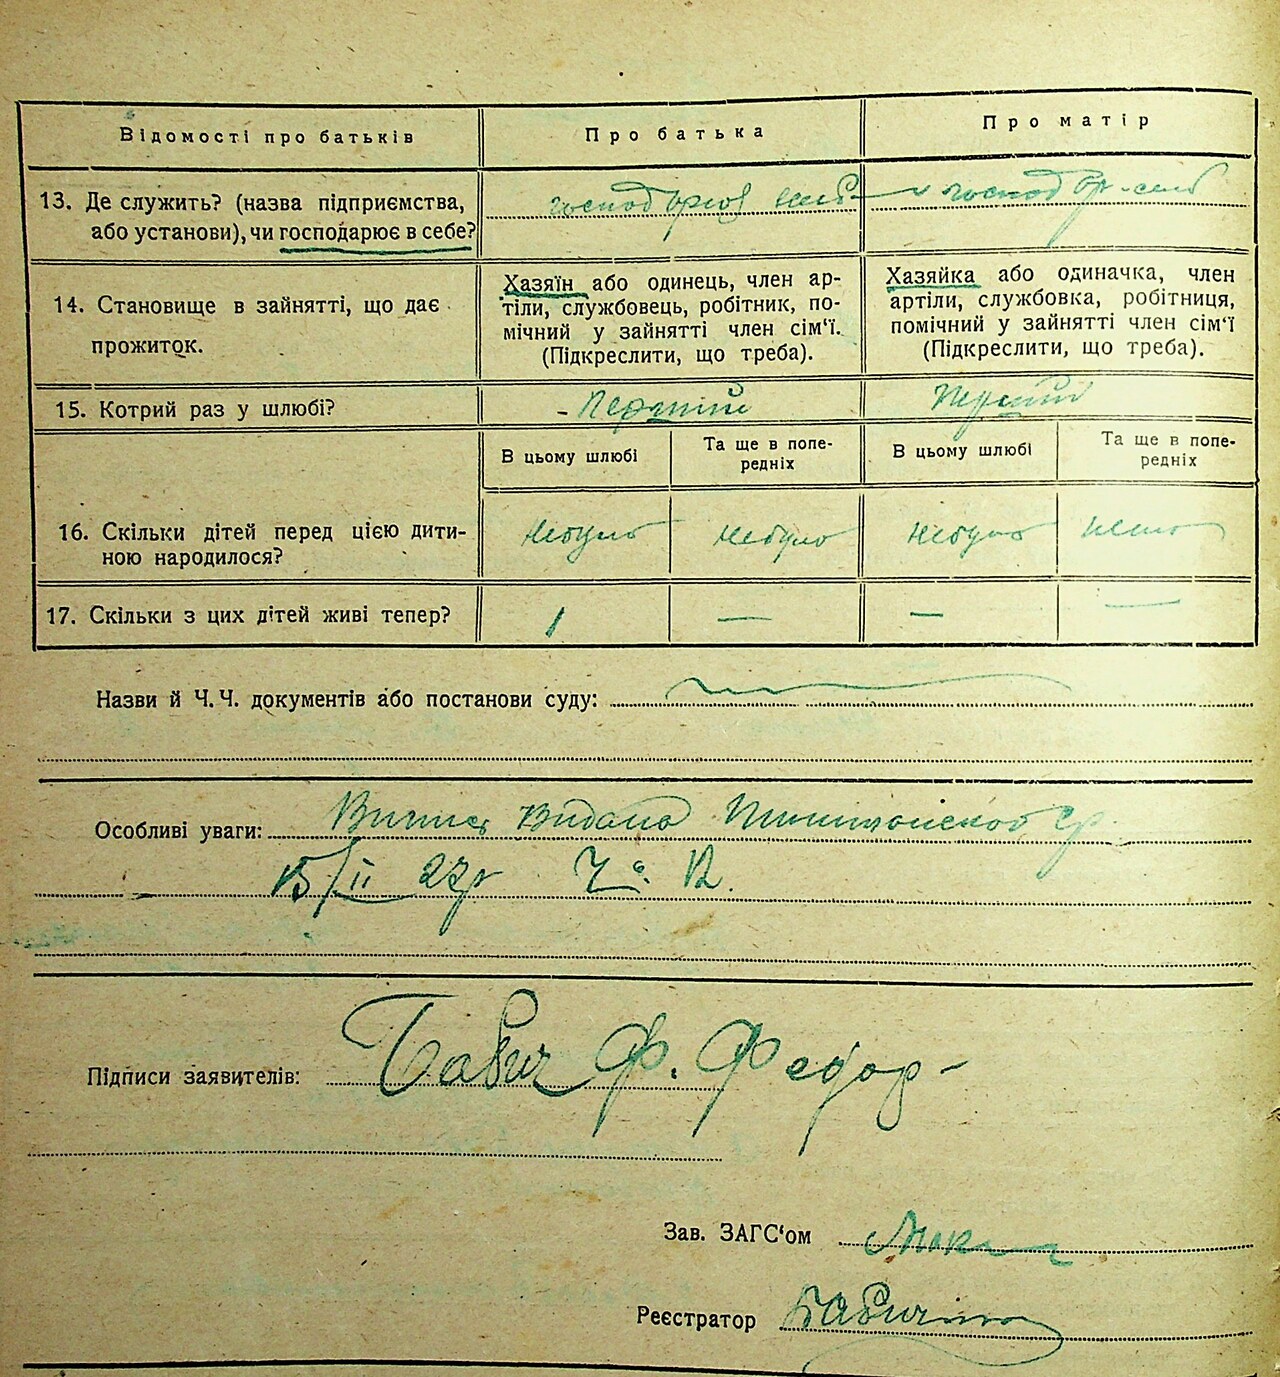 Відомості про батьків
Про батька
Про матір
13. Де служить? (назва підприємства,
або установи), чи господарює в себе?
14. Становище в зайнятті, що дає
прожиток.
Хазяїн або одинець, член ар-
тіли, службовець, робітник, по-
мічний у зайнятті член сім'ї.
(Підкреслити, що треба).
Хазяйка або одиначка, член
артіли, службовка, робітниця,
помічний у зайнятті член сім'ї
(Підкреслити, що треба).
15. Котрий раз у шлюбі?
Перший
Перший
В цьому шлюбі
Та ще в попе-
редніх
В цьому шлюбі
Та ще в попе-
редніх
16. Скільки дітей перед цією дити-
ною народилося?
Небуло
Небуло
Небуло
17. Скільки з цих дітей живі тепер?
—
—
—
Назви й Ч.Ч. документів або постанови суду:
Особливі уваги: Випис Видано
15/II 27р
Підписи заявителів: Бабич Ф. Федор
Зав. ЗАГС'ом
Реєстратор